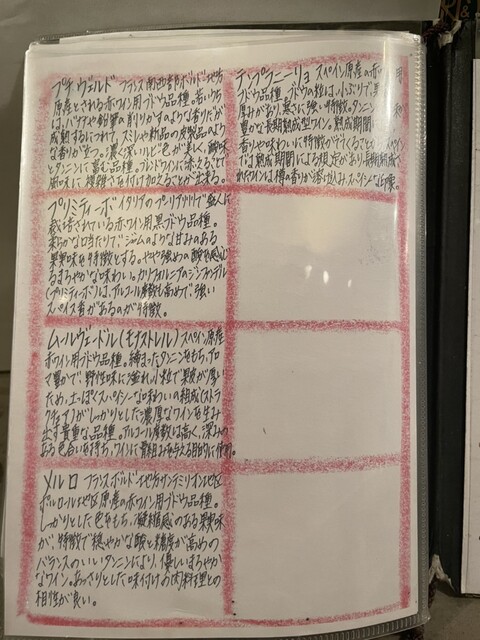 プチ ヴェルド フランス南西部ボルドー地方
原産とされる赤ワイン用ブドウ品種。若いうち
はバナナや鉛筆の削りかすのような香りだが
成熟するにつれて、スミレや新品の皮製品のよう
な香りがたつ。濃く深いルビー色が美しく、酸味
とタンニンに富む品種。ブレンドワインに加えることで
風味に複雑さを付け加えることが出来る。
プリミティーボ イタリアのプーリア州で盛んに
栽培されている赤ワイン用黒ブドウ品種。
柔らかな口当たりでジャムのような甘みのある
果実味を特徴とする。やや強めの酸を感じ
るまろやかな味わい。カリフォルニアのジンファンデル
(プリミティーボ)は、アルコール度数も高めで、強い
スパイス香があるのが特徴。
ムールヴェードル(モナストレル) スペイン原産
赤ワイン用ブドウ品種。締まったタンニンをもち、アロ
マ豊かで、野性味に溢れ、小粒で果皮が厚い
ため、土っぽくスパイシーな味わいの組成(ストラ
クチャア)がしっかりとした濃厚なワインを生み
出す貴重な品種。アルコール度数は高く、深みの
ある色合いを持ち、ワインに骨組みを与える目的に使用。
メルロ フランスボルドー地方サンテミリオン地区
ポムロール地区原産の赤ワイン用ブドウ品種。
しっかりとした色をもち、凝縮感のある果実味
が、特徴で穏やかな酸と糖度が高めの
バランスのいいタンニンにより、優しいまろやか
なワイン。あっさりとした味付けの肉料理との
相性が良い。
テンプラニーリョ スペイン原産の赤 用
ブドウ品種。ブドウの粒は小ぶりで、果
厚みがあり、暑さに強い特徴。タンニン 和
豊かな長期熟成型ワイン。熟成期間
香りや味わいに特徴が スペイン
では熟成期間による規定があり長期熟成
されたワインは樽の香りが溶け込み、スパイシーな印象。